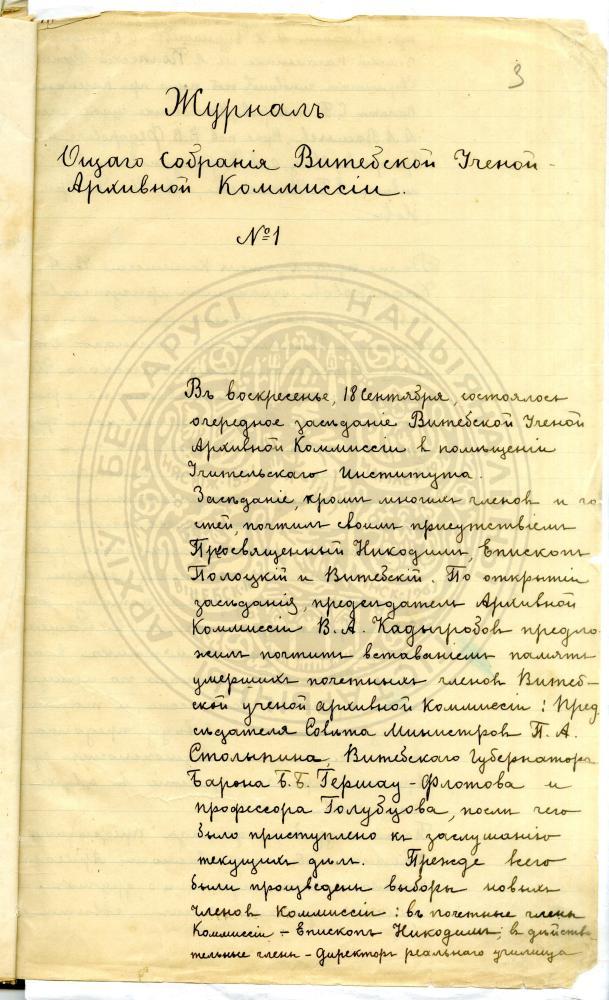 3
Журналъ
Општаго Собранія Витебской Ученой
Архивной Коммиссіи.
№1
Въ воскресенье, 18 Сентября, состоялось
очередное засѣданіе Витебской Ученой
Архивной Коммиссіи в помѣщеніи
Учительскаго Института.
Засѣданіе, кромѣ многихъ членов и го-
стей, почтилъ своимъ присутствіемъ
Преосвященный Никодимъ, Епископъ
Полоцкій и Витебскій. По открытіи
засѣданія, предсѣдатель Архивной
Коммиссіи В. А. Кадыгробов предло-
жилъ почтить вставаніемъ память
умершихъ почетныхъ членов Витеб-
ской ученой архивной Коммиссіи: Пред-
сѣдателя Совѣта Министров П. А.
Столыпина, Витебскаго Губернатора
Барона Б. Б. Гершау-Флотова и
профессора Голубцова, послѣ чего
было приступлено къ заслушанію
текущихъ дѣлъ. Прежде всего
были произведены выборы новыхъ
членов Коммиссіи: въ почетные члены
Коммиссіи - Епископъ Никодимъ; в дѣйстви-
тельные члены - Директоръ реальнаго училища
АРХІЎ БЕЛАРУСІ НАЦЫЯ